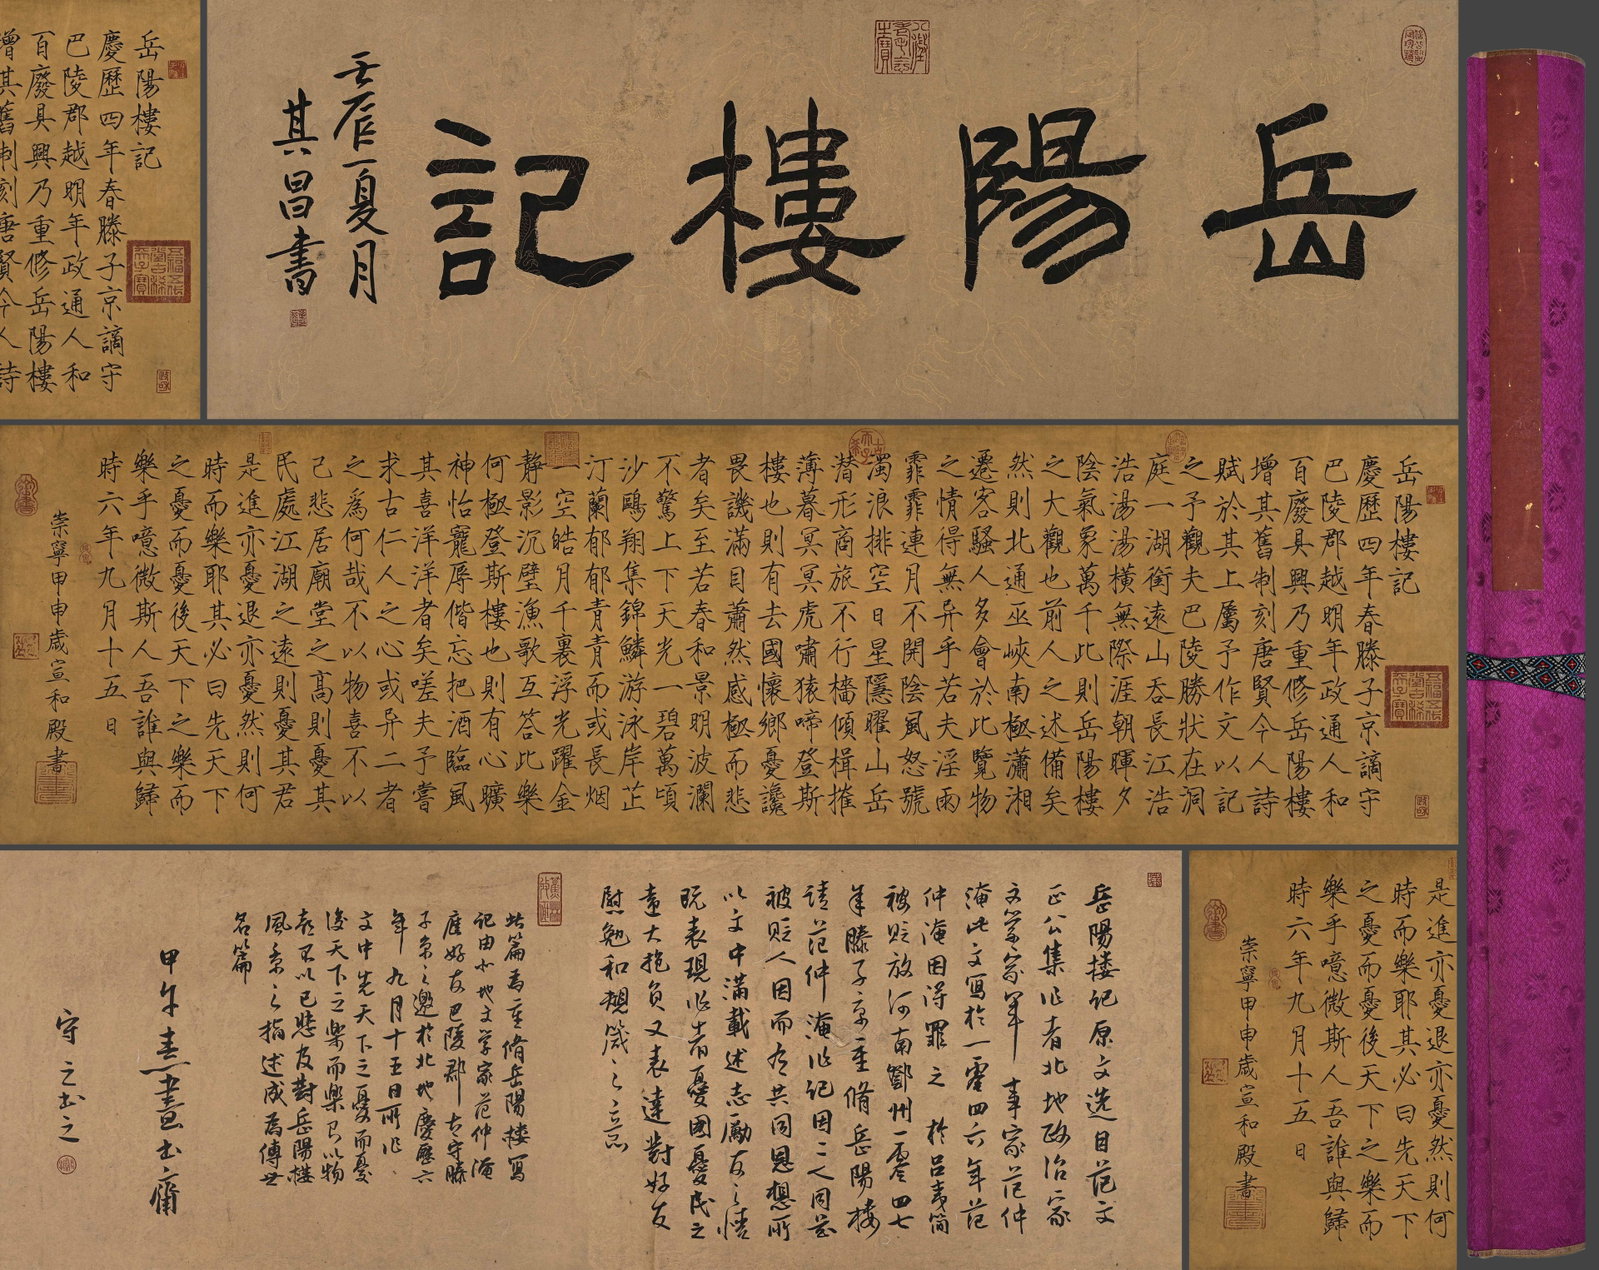 岳陽樓記
壬辰一夏月
其昌書
岳陽樓記
慶歷四年春滕子京謫守
巴陵郡越明年政通人和
百廢具興乃重修岳陽樓
增其舊制刻唐賢今人詩
岳陽樓記
慶歷四年春滕子京謫守
巴陵郡越明年政通人和
百廢具興乃重修岳陽樓
增其舊制刻唐賢今人詩
賦於其上屬予作文以記
之予觀夫巴陵勝狀在洞
庭一湖銜遠山吞長江浩
浩湯湯橫無際涯朝暉夕
陰氣象萬千此則岳陽樓
之大觀也前人之述備矣
然則北通巫峽南極瀟湘
遷客騷人多會於此覽物
之情得無异乎若夫淫雨
霏霏連月不開陰風怒號
濁浪排空日星隱曜山岳
潜形商旅不行檣傾楫摧
薄暮冥冥虎嘯猿啼登斯
樓也則有去國懷鄉憂讒
畏譏滿目蕭然感極而悲
者矣至若春和景明波瀾
不驚上下天光一碧萬頃
沙鷗翔集錦鱗游泳岸芷
汀蘭郁郁青青而或長烟
一空皓月千裏浮光躍金
静影沉璧漁歌互答此樂
何極登斯樓也則有心曠
神怡寵辱偕忘把酒臨風
其喜洋洋者矣嗟夫予嘗
求古仁人之心或异二者
之爲何哉不以物喜不以
己悲居廟堂之高則憂其
民處江湖之遠則憂其君
是進亦憂退亦憂然則何
時而樂耶其必曰先天下
之憂而憂後天下之樂而
樂乎噫微斯人吾誰與歸
時六年九月十五日
崇寧甲申歲宣和殿書
是進亦憂退亦憂然則何
時而樂耶其必曰先天下
之憂而憂後天下之樂而
樂乎噫微斯人吾誰與歸
時六年九月十五日
崇寧甲申歲宣和殿書
岳陽楼记原文选目范文
正公集作者北地政治家
文学家军事家范仲
淹此文寫於一零四六年范
仲淹因得罪之於吕夷简
被贬放河南鄧州一零四七
年滕子京重脩岳陽楼
請范仲淹作记因二人同為
被贬人因而有共同思想所
以文中满載述志勵友之情
既表現作者憂國憂民之
遠大抱負又表達對好友
慰勉和規箴之意
此篇為重脩岳陽楼寫
记由北地文学家范仲淹
應好友巴陵郡太守滕
子京之邀於北地慶歷六
年九月十五日所作
文中先天下之憂而憂
後天下之樂而樂不以物
喜不以己悲及對岳陽楼
風景之描述成為傳世
名篇
甲午春畫士甫
守之书之